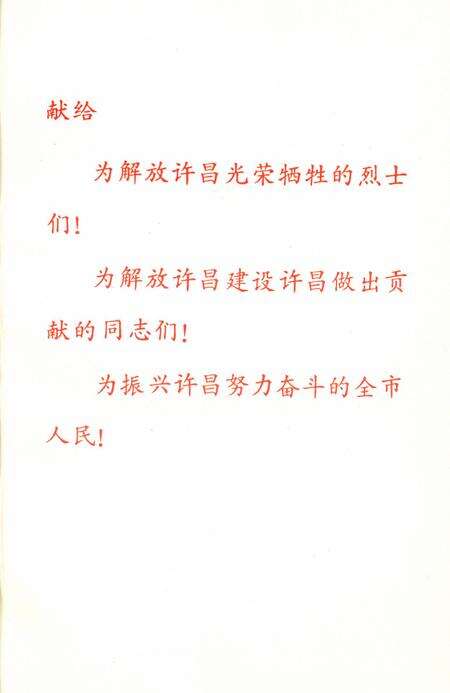 献给
为解放许昌光荣牺牲的烈士
们！
为解放许昌建设许昌做出贡
献的同志们！
为振兴许昌努力奋斗的全市
人民！